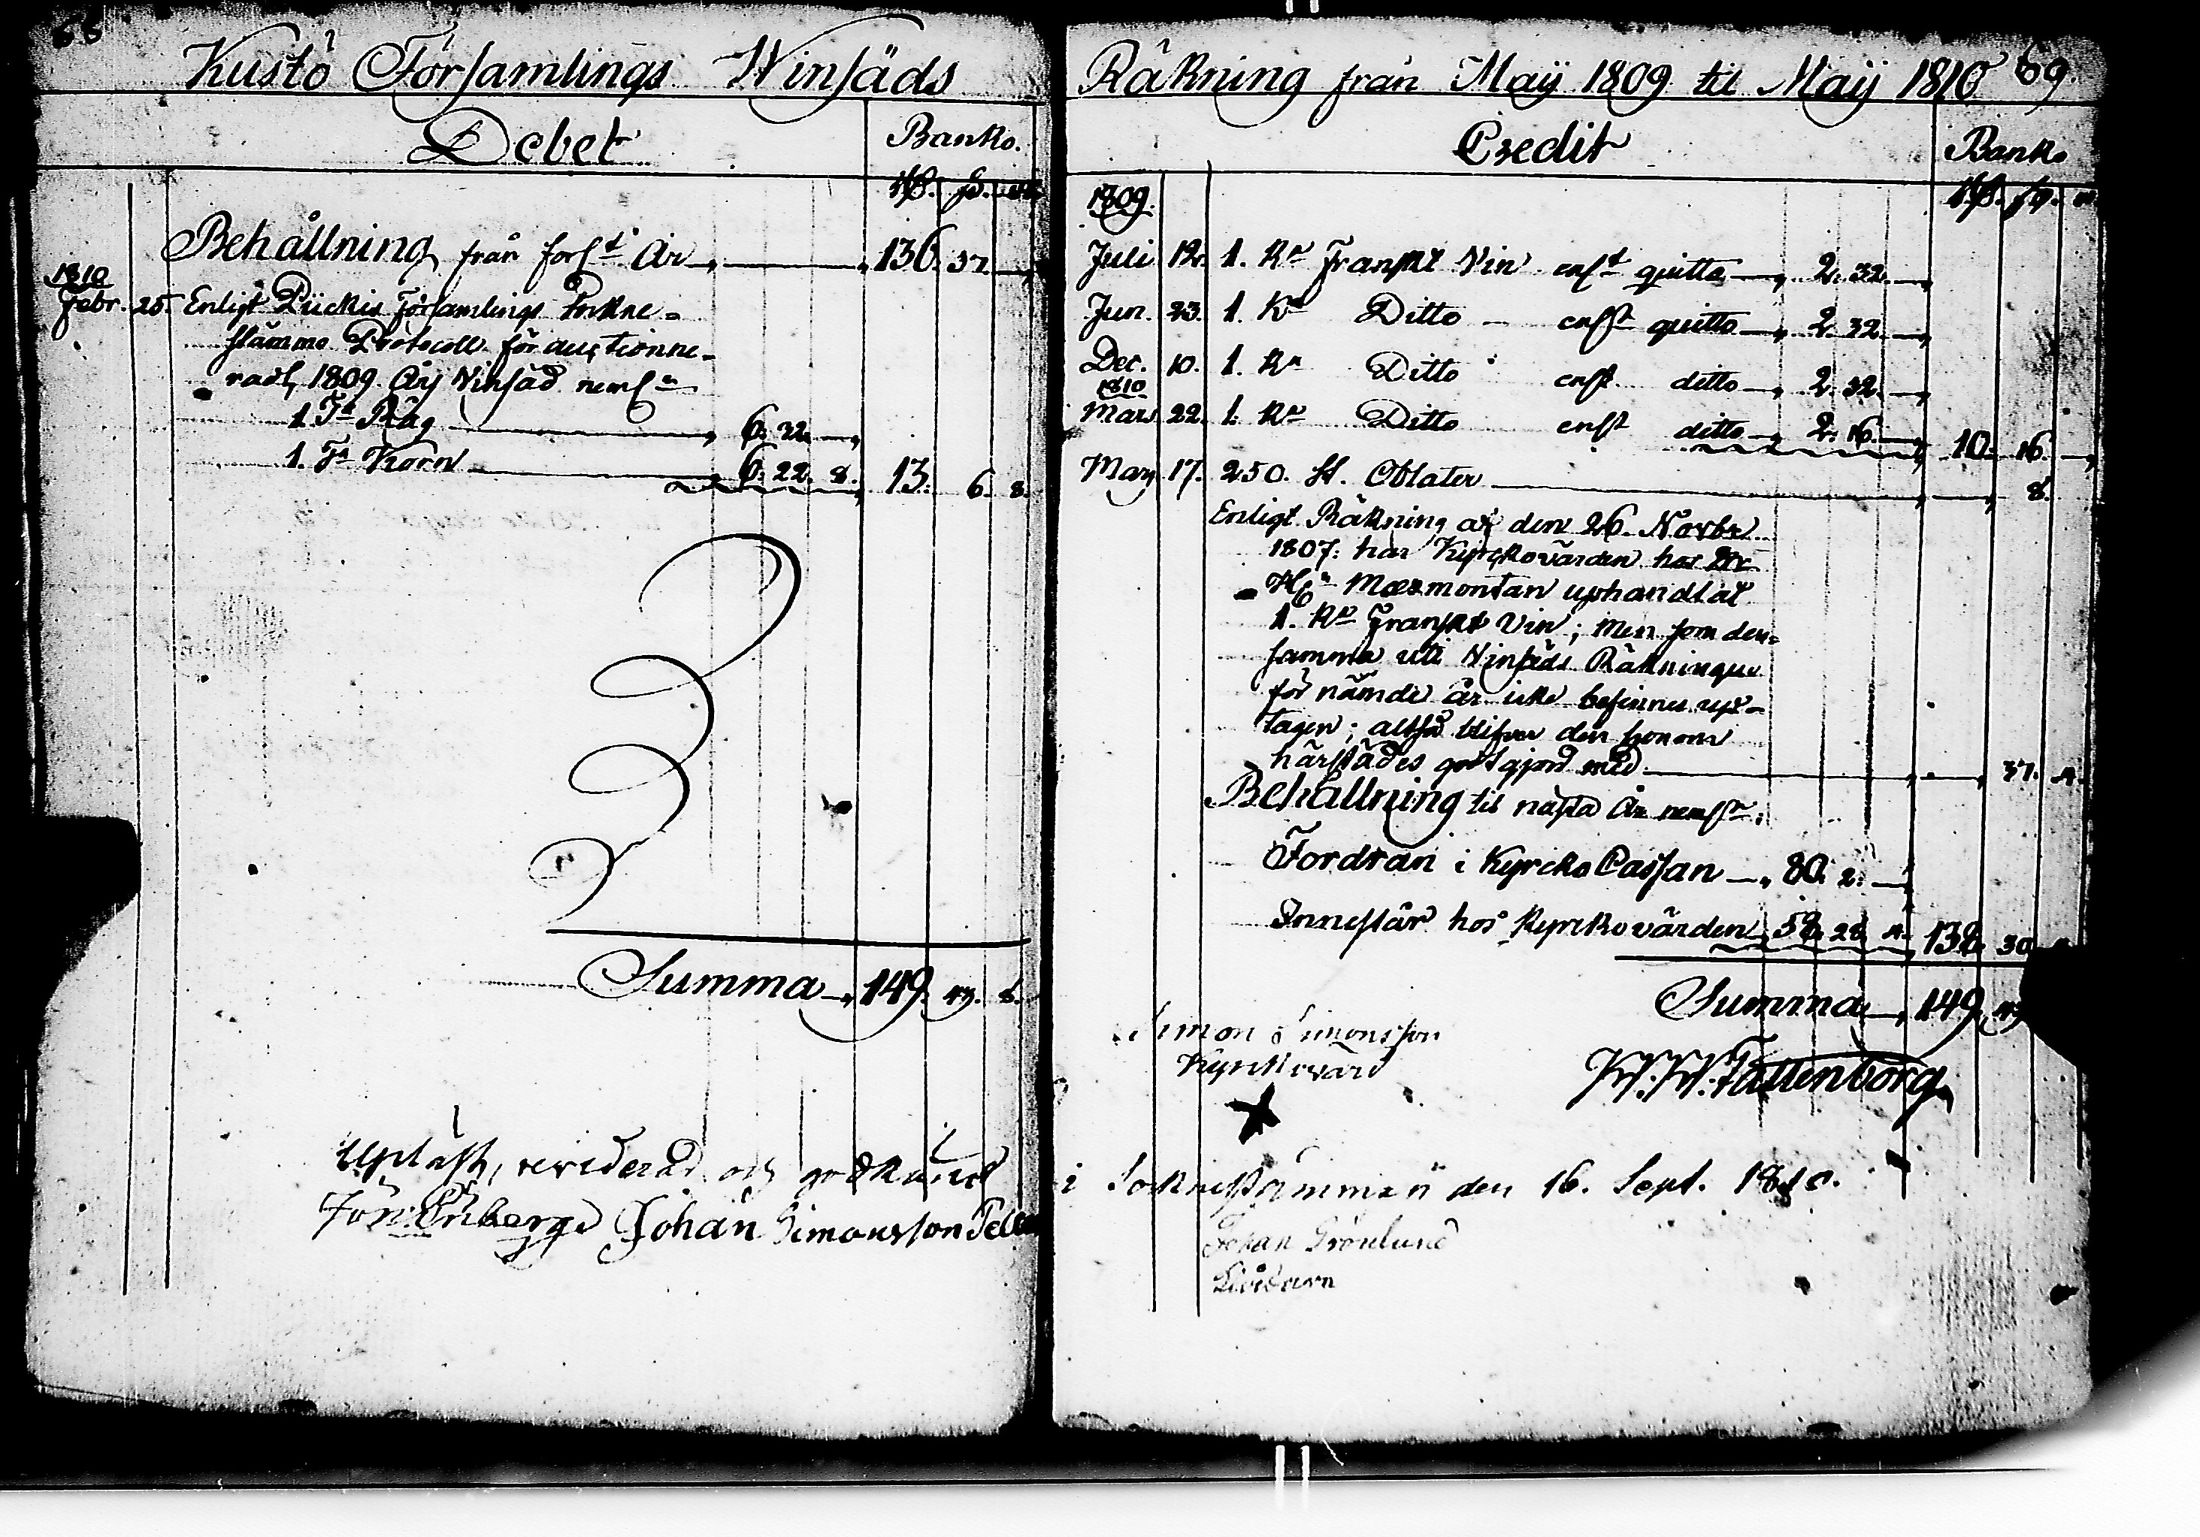 68
Kustö Församlings Winsäds
Debet Banko.
Behållning från förl:t År 136. 37.
1810
Febr. 25. Enligt Piickis Församlings Sokne-
stämmo Protocoll för auctionne-
rad 1809 Års Vinsäd neml:n
1. T:a Råg 6. 32.
1. T:a Korn 6. 22. 8. 13. 6. 8.
Summa 149. 43. 8.
Upläst, reviderad och godkänd
Johan Simonsson
Räkning från Maÿ 1809 til Maÿ 1810 69.
Credit Banko
1809.
Juli 12. 1. K:a Franskt Vin enl:t quitto 2. 32.
Jun. 23. 1. K:a Ditto enl:t quitto 2. 32.
Dec. 10. 1. K:a Ditto enl:t ditto 2. 32.
1810
Mars 22. 1. K:a Ditto enl:t ditto 2. 16. 10. 16.
May 17. 250. St. Oblater 8.
Enligt Räkning af den 26. Novbr
1807: har Kyrckovärden hos
H:r Mæxmontan uphandlat
1. K:a Franskt Vin; Men som den-
samma uti Vinsäds Räkningen
för nämde år icke befinnes up-
tagen; altså blifver den honom
härstädes godtgjord med 37. 4.
Behållning til nästa År neml:n
Fordran i Kyrcko Cassan 80. 2.
Innestår hos Kyrckovärden 58. 28. 4. 138. 30
Summa 149. 43
Simon Simonsson
Kyrkovärd
W. W. Fattenborg
i Soknestämman den 16. Sept. 1810.
Johan Grönlund